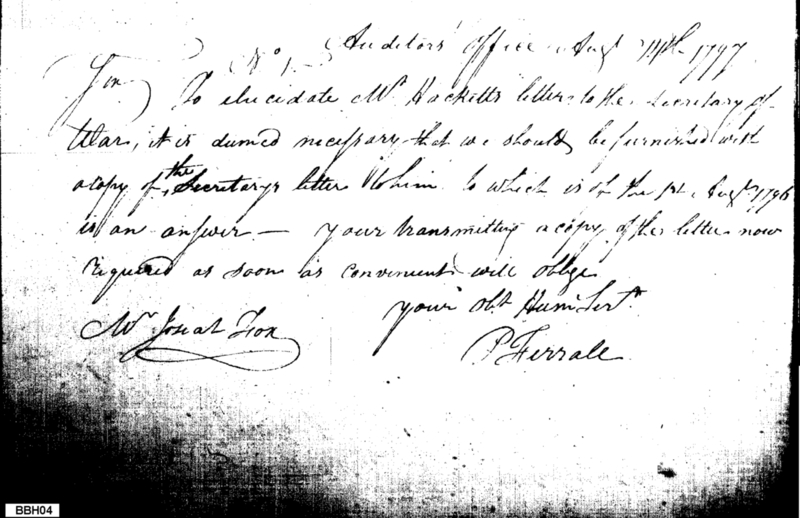 Auditors Office Augt 11th 1797
No 1
Sir
To elucidate Mr Hacketts letter to the Secretary of
War, it is deemed necessary that we should be furnished with
a copy of the Secretarys letter to him to which is of the 1st Augt 1796
is an answer — your transmitting a copy of the letter now
required as soon as convenient will oblige
your obt Humb Sert
Mr Josiah Fox
P Ferrall
BBH04